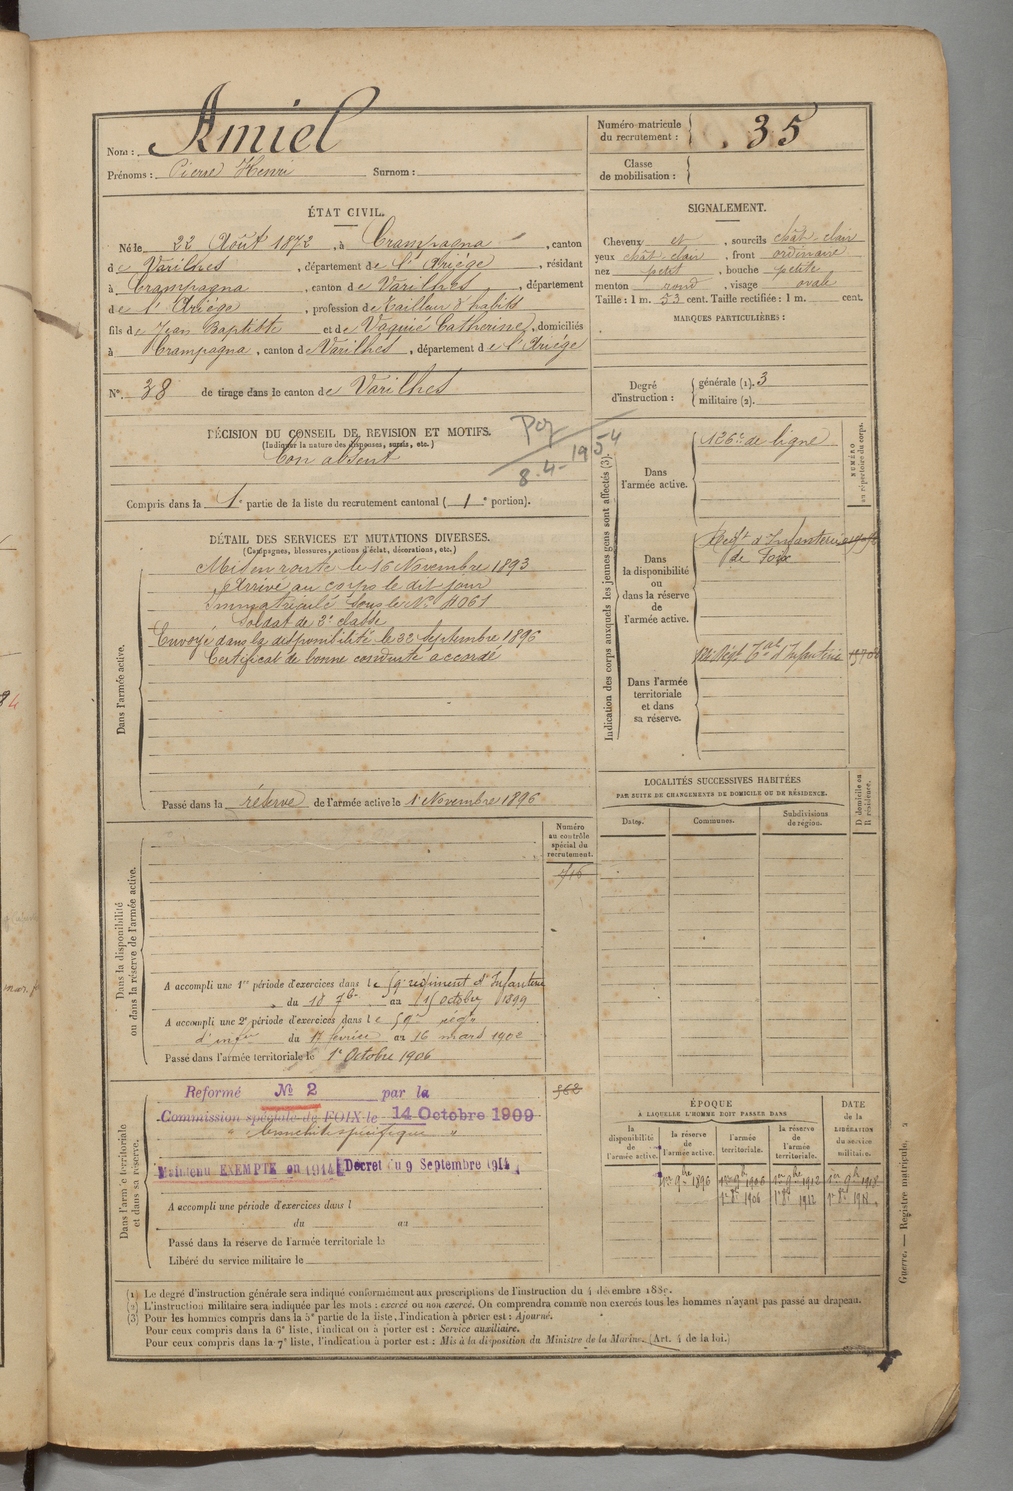 Nom : Amiel
Prénoms : Pierre Henri Surnom :
Numéro matricule du recrutement : 35
Classe de mobilisation :
ÉTAT CIVIL.
Né le 22 Août 1872, à Crampagna, canton
de Varilhes, département de l'Ariége, résidant
à Crampagna, canton de Varilhes, département
de l'Ariége, profession de tailleur d'habits
fils de Jean Baptiste et de Vaquié Catherine, domiciliés
à Crampagna, canton de Varilhes, département de l'Ariége
N° 38 de tirage dans le canton de Varilhes
SIGNALEMENT.
Cheveux et, sourcils chât. clair
yeux chât clair, front ordinaire
nez petit, bouche petite
menton rond, visage ovale
Taille : 1 m. 53 cent. Taille rectifiée : 1 m. cent.
MARQUES PARTICULIÈRES :
Degré d'instruction : générale (1). 3
militaire (2).
DÉCISION DU CONSEIL DE REVISION ET MOTIFS.
(Indiquer la nature des dispenses, sursis, etc.)
Bon absent
8.4-1954
Compris dans la 1e partie de la liste du recrutement cantonal ( 1e portion).
DÉTAIL DES SERVICES ET MUTATIONS DIVERSES.
(Campagnes, blessures, actions d'éclat, décorations, etc.)
Dans l'armée active.
Mis en route le 16 Novembre 1893
Arrivé au corps le dit jour
immatriculé sous le No 4061
Soldat de 2e classe
Envoyé dans la disponibilité le 22 Septembre 1896
Certificat de bonne conduite accordé
Passé dans la réserve de l'armée active le 1 Novembre 1896
Indication des corps auxquels les jeunes gens sont affectés (3).
NUMÉRO au répertoire du corps.
Dans l'armée active.
126e de ligne
Dans la disponibilité ou dans la réserve de l'armée active.
Regt d'Infanterie
de Foix
Dans l'armée territoriale et dans sa réserve.
Régt Tal d'Infanterie
LOCALITÉS SUCCESSIVES HABITÉES
PAR SUITE DE CHANGEMENTS DE DOMICILE OU DE RÉSIDENCE.
Dates.
Communes.
Subdivisions de région.
D. domicile ou R. résidence.
Dans la disponibilité ou dans la réserve de l'armée active.
Numéro au contrôle spécial du recrutement.
A accompli une 1re période d'exercices dans le 59e regiment d'Infanterie
du 18 7bre au 15 octobre 1899
A accompli une 2e période d'exercices dans le 59e régt
d'infrie du 17 février au 16 mars 1902
Passé dans l'armée territoriale le 1er Octobre 1906
Dans l'armée territoriale et dans sa réserve.
562
Reformé No 2 par la
Commission spéciale de FOIX le 14 Octobre 1909
" bronchite spécifique "
Maintenu EXEMPTE en 1914 Décret du 9 Septembre 1914
A accompli une période d'exercices dans l
du au
Passé dans la réserve de l'armée territoriale le
Libéré du service militaire le
ÉPOQUE
A LAQUELLE L'HOMME DOIT PASSER DANS
DATE de la LIBÉRATION du service militaire.
la disponibilité de l'armée active.
la réserve de l'armée active.
l'armée territoriale.
la réserve de l'armée territoriale.
1er 9bre 1896 1er 9bre 1906 1er 9bre 1912 1er 9bre 1918
1er 8bre 1906 1er 8bre 1912 1er 8bre 1918
Guerre. — Registre matricule. 2
(1) Le degré d'instruction générale sera indiqué conformément aux prescriptions de l'instruction du 4 décembre 1889.
(2) L'instruction militaire sera indiquée par les mots : exercé ou non exercé. On comprendra comme non exercés tous les hommes n'ayant pas passé au drapeau.
(3) Pour les hommes compris dans la 5e partie de la liste, l'indication à porter est : Ajourné.
Pour ceux compris dans la 6e liste, l'indication à porter est : Service auxiliaire.
Pour ceux compris dans la 7e liste, l'indication à porter est : Mis à la disposition du Ministre de la Marine. (Art. 4 de la loi.)